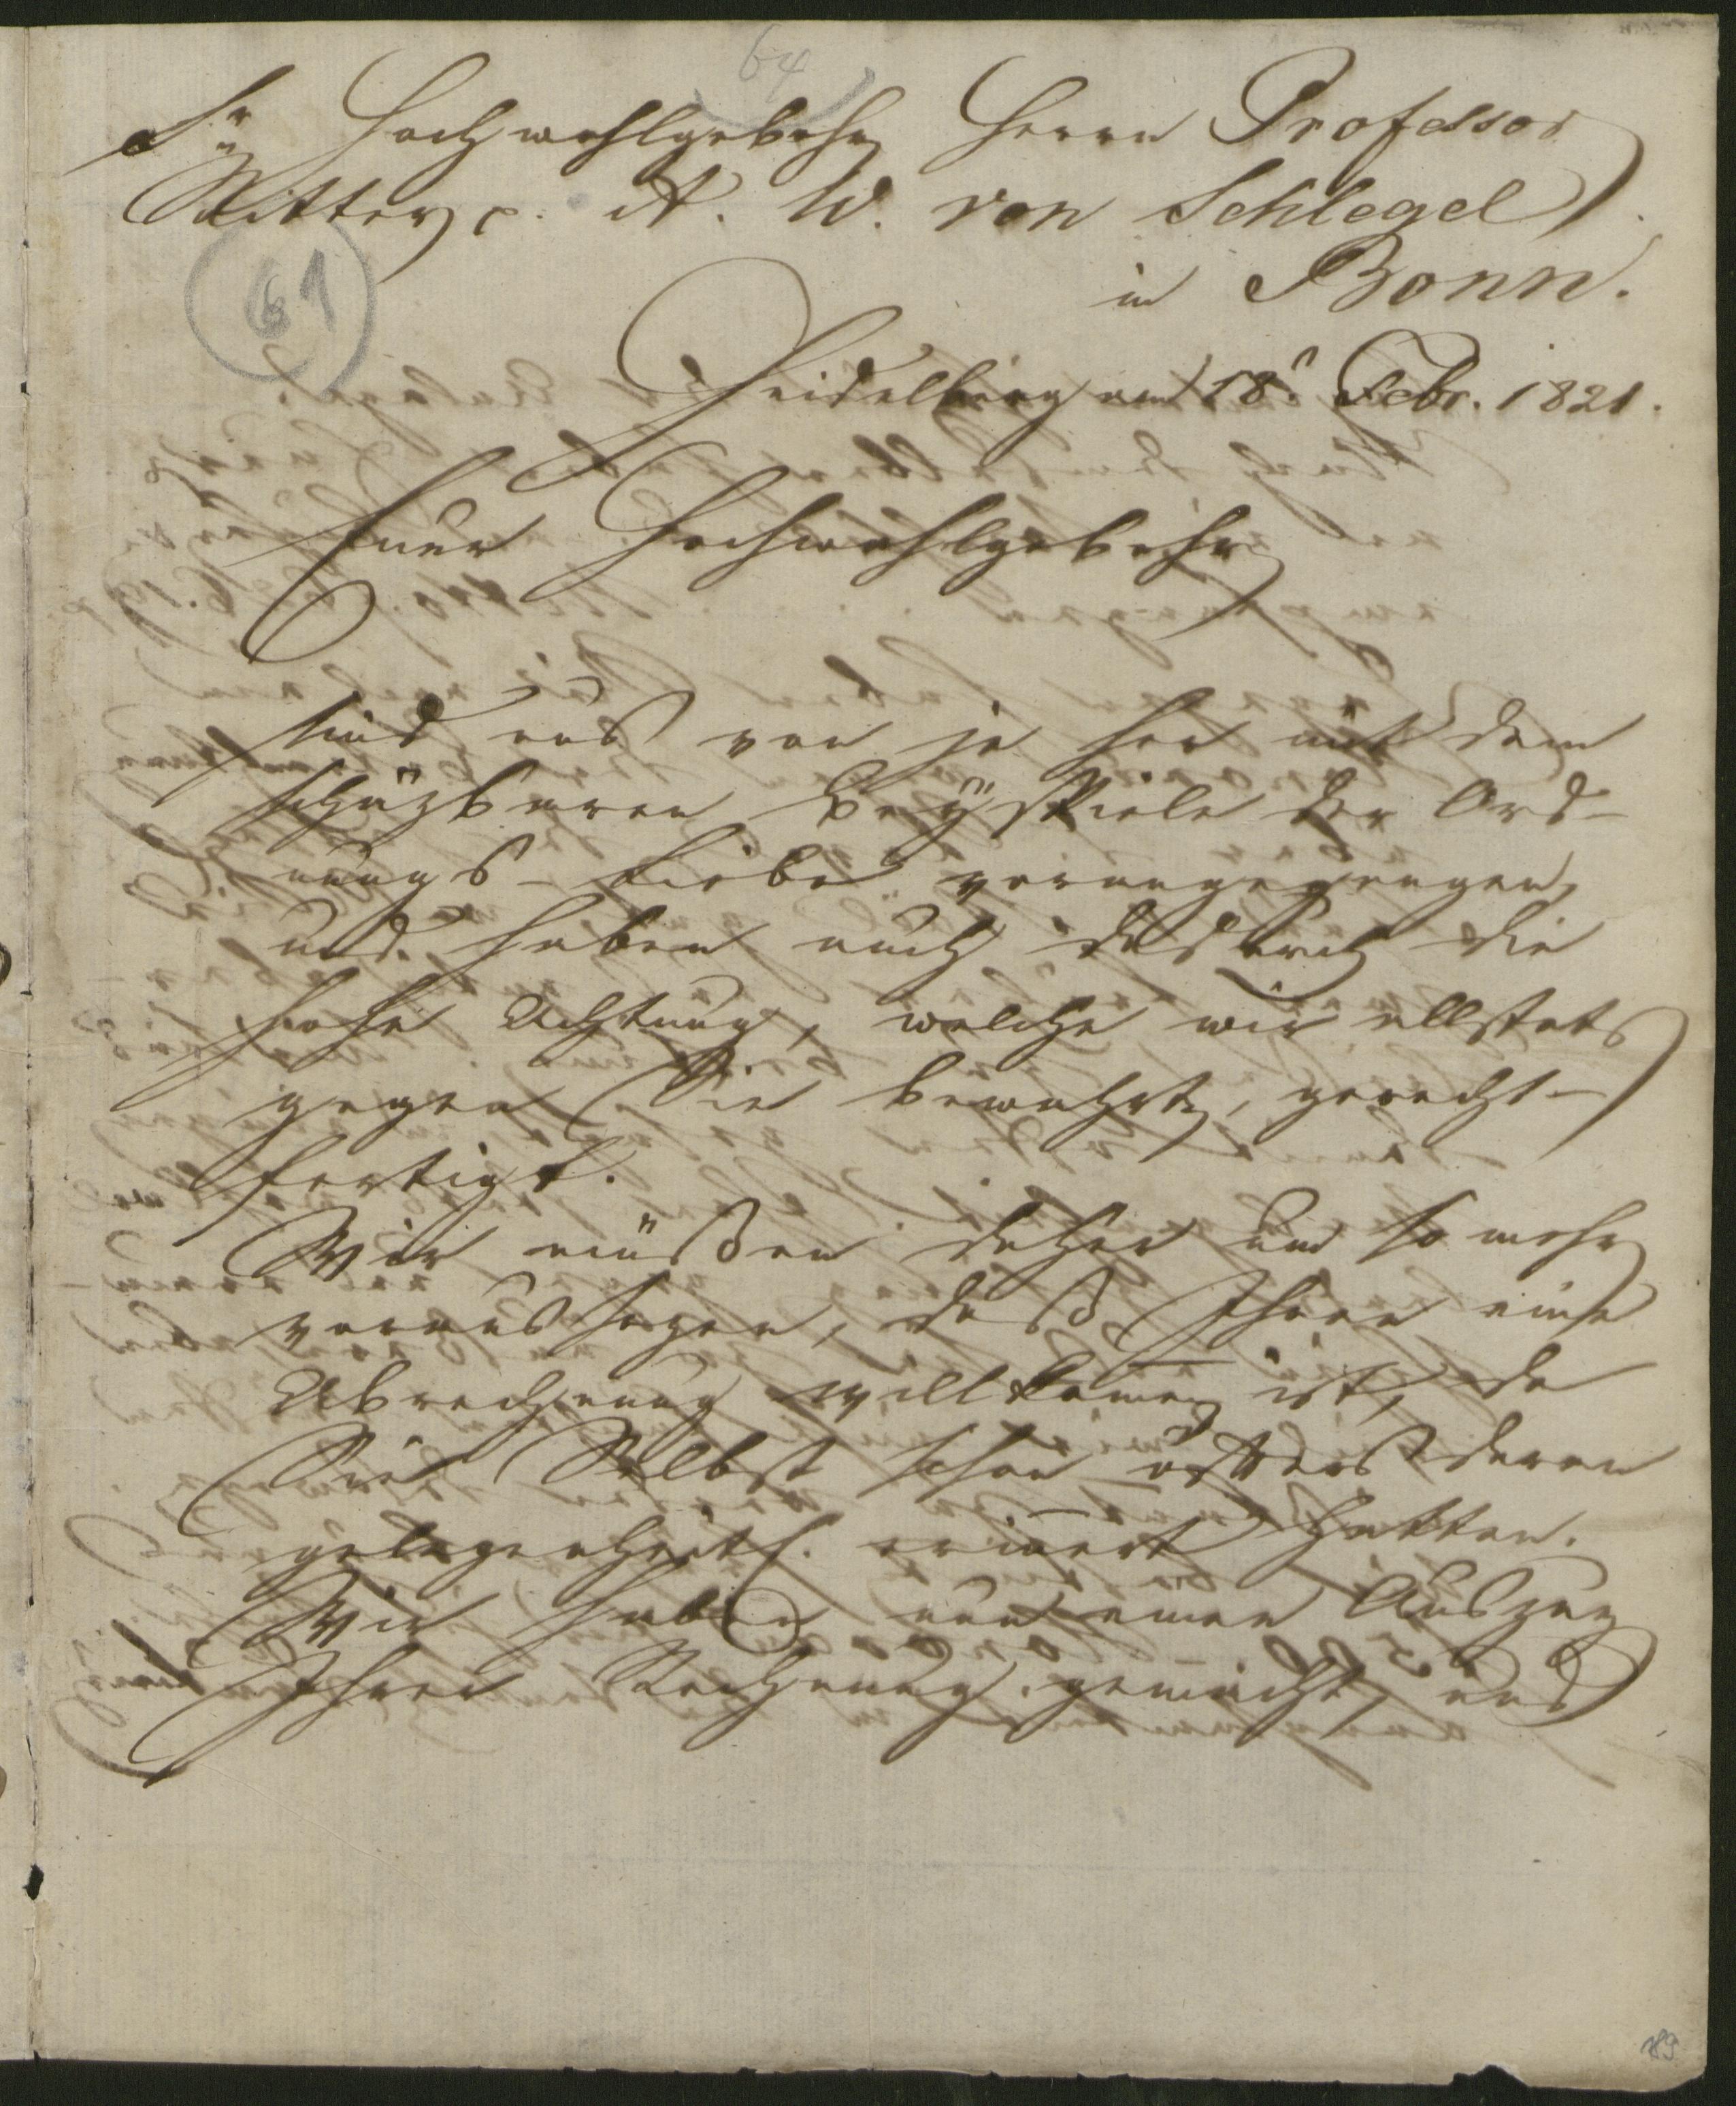 64
Sr Hochwohlgebohrn Herrn Professor
Ritter p. A. W. von Schlegel
in Bonn.
61
Heidelberg am 18t Febr. 1821.
Euer Hochwohlgebohrn
sind uns von je her mit dem
schäzbaren Beÿspiele der Ord-
nungs-Liebe vorangegangen,
und haben auch dadurch die
hohe Achtung, welche wir allstets
gegen Sie bewahrten, gerecht-
fertigt.
Wir müßen daher um so mehr
voraussezen, daß Ihnen eine
Abrechnung willkomen ist, da
Sie Selbst schon öffters daran
gelegenheitl. erinert hatten.
Wir haben nun einen Auszug
Ihrer Rechnung gemacht, und
89